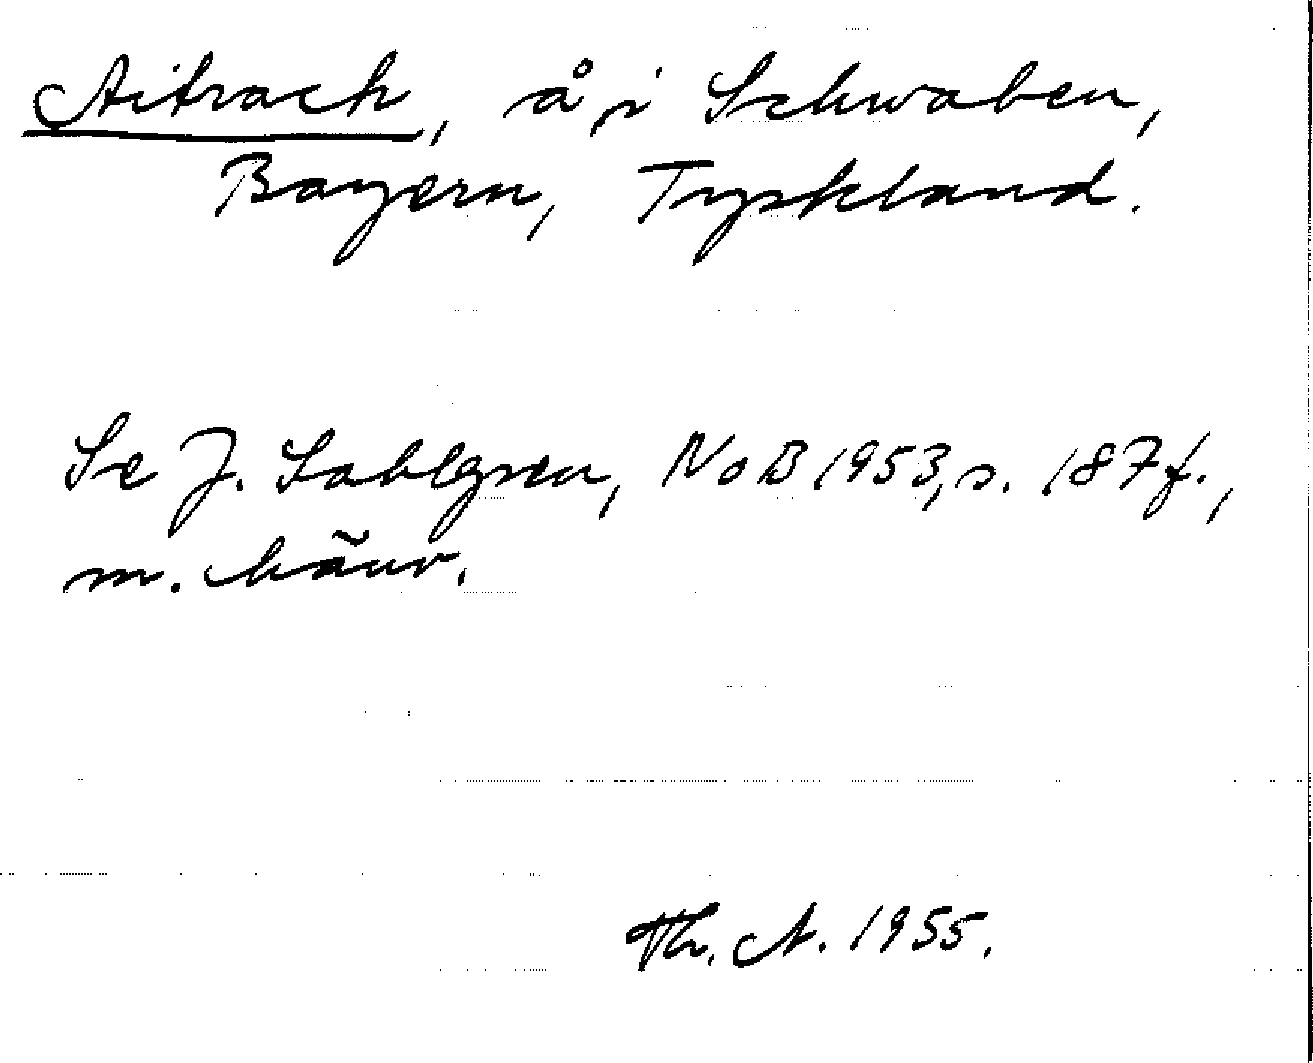 Aitrach, å i Schwaben,
Bayern, Tyskland.
Se J. Sahlgren, NoB 1953, s. 187 f.,
m. hänv.
Th. A. 1955.